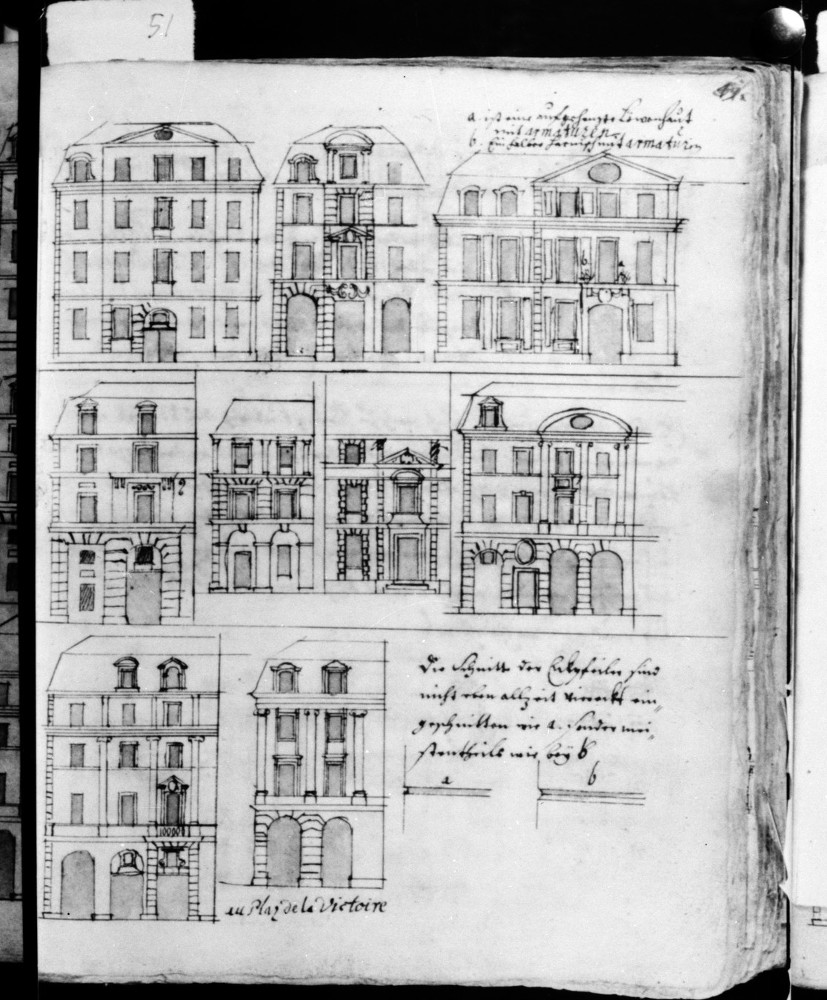 51
a. ist eine aufgehengte Löwenhaut
mit armaturen
b. Ein halber Harnisch mit armaturen
b
a
Die Schnitte der Eckpfeiler sind
nicht eben allzeit viereckt ein=
geschnitten wie a. sonder mei=
stentheils wie beÿ b
a
b
au Plaz de la Victoire